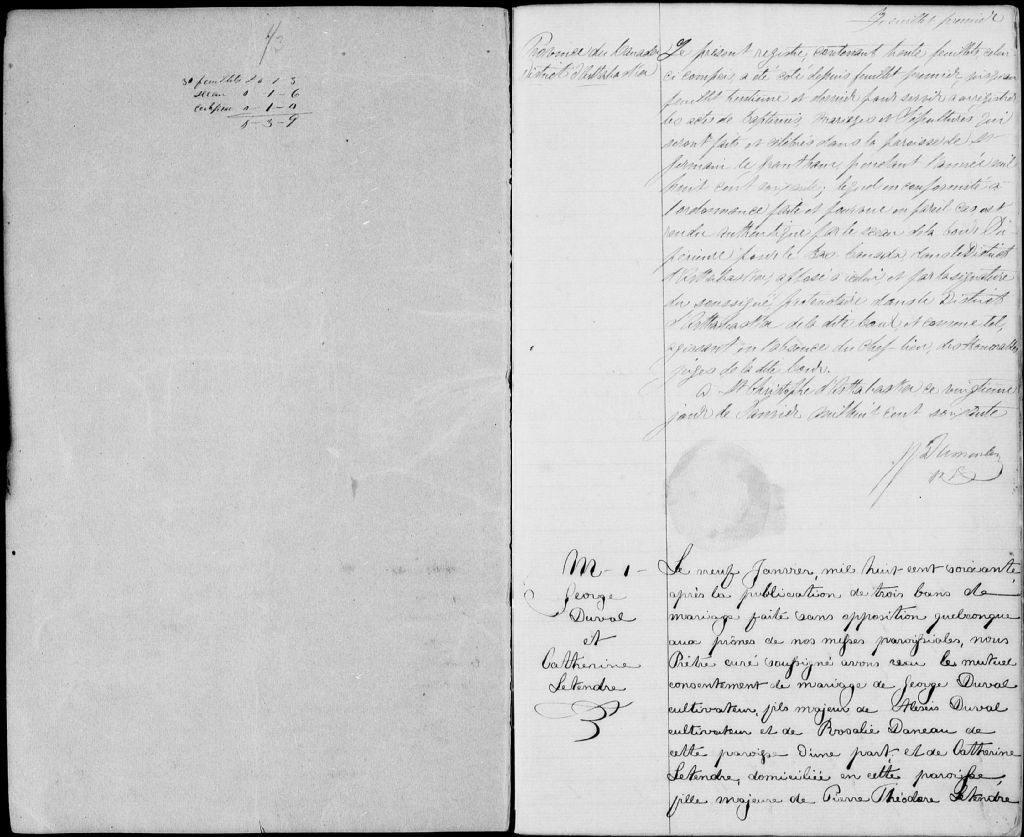 30 feuillets 0 - 1 - 3
sceau 0 - 1 - 6
0 - 1 - 0
0 - 3 - 9
Feuillet premier
Province du Canada
District d'Arthabaska
Le present registre, contenant trente feuillets, celui
ci compris, a été coté depuis feuillet premier jusqu'au
feuillet trentieme et dernier pour servir à enregistrer
les actes de Baptêmes Mariages et Sépultures qui
seront faits et célébrés dans la paroisse de St
Germain de Grantham pendant l'année mil
huit cent soixante; lequel en conformité à
l'ordonnance faite et pourvue en pareil cas est
rendu authentique par le sceau de la Cour Su-
périeure pour le Bas Canada dans le District
d'Arthabaska, apposé à celui, et par la signature
du soussigné protonotaire dans le District
d'Arthabaska de la dite Cour, et comme tel,
agissant en l'absence du Chef-lieu, des Honorables
juges de la dte Cour.
à St Christophe d'Arthabaska ce vingtieme
jour de Janvier mil huit cent soixante
M - 1 -
George
Duval
et
Catherine
Letendre
Le neuf Janvier, mil huit-cent soixante,
après la publication de trois bans de
mariage faite sans opposition quelconque
aux prônes de nos messes paroissiales, nous
Prêtre curé soussigné avons reçu le mutuel
consentement de mariage de George Duval
cultivateur, fils majeur de Alexis Duval
cultivateur et de Rosalie Daneau de
cette paroisse d'une part, et de Catherine
Letendre, domiciliée en cette paroisse,
fille majeure de Pierre Théodore Letendre